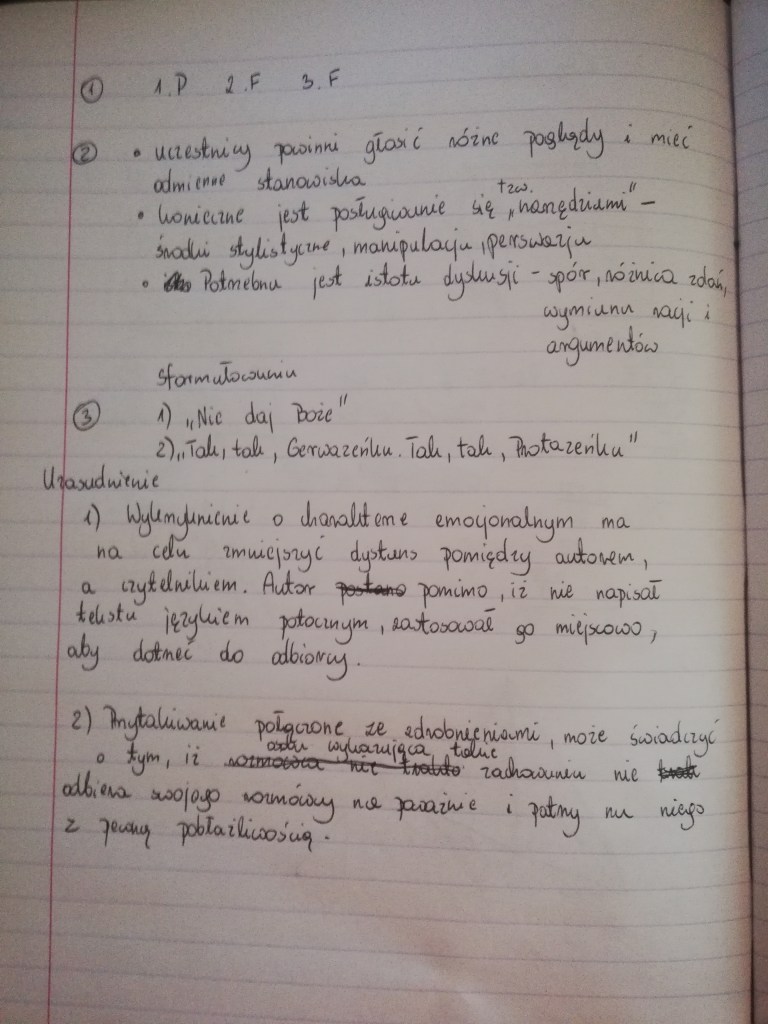 ① 1.P 2.F 3.F
② • uczestnicy powinni głosić różne poglądy i mieć
odmienne stanowiska
• konieczne jest posługiwanie się tzw. „narzędziami" –
środki stylistyczne, manipulacja, perswazja
• Potrzebna jest istota dyskusji – spór, różnica zdań,
wymiana racji i
argumentów
Sformułowania
③ 1) „Nie daj Boże"
2) „Tak, tak, Gerwazeńku. Tak, tak, Protazeńku"
Uzasadnienie
1) Wykrzyknienie o charakterze emocjonalnym ma
na celu zmniejszyć dystans pomiędzy autorem,
a czytelnikiem. Autor pomimo, iż nie napisał
tekstu językiem potocznym, zastosował go miejscowo,
aby dotrzeć do odbiorcy.
2) Przytakiwanie połączone ze zdrobnieniami, może świadczyć
o tym, iż osoba wykazująca takie zachowania nie
odbiera swojego rozmówcy na poważnie i patrzy na niego
z pewną pobłażliwością.